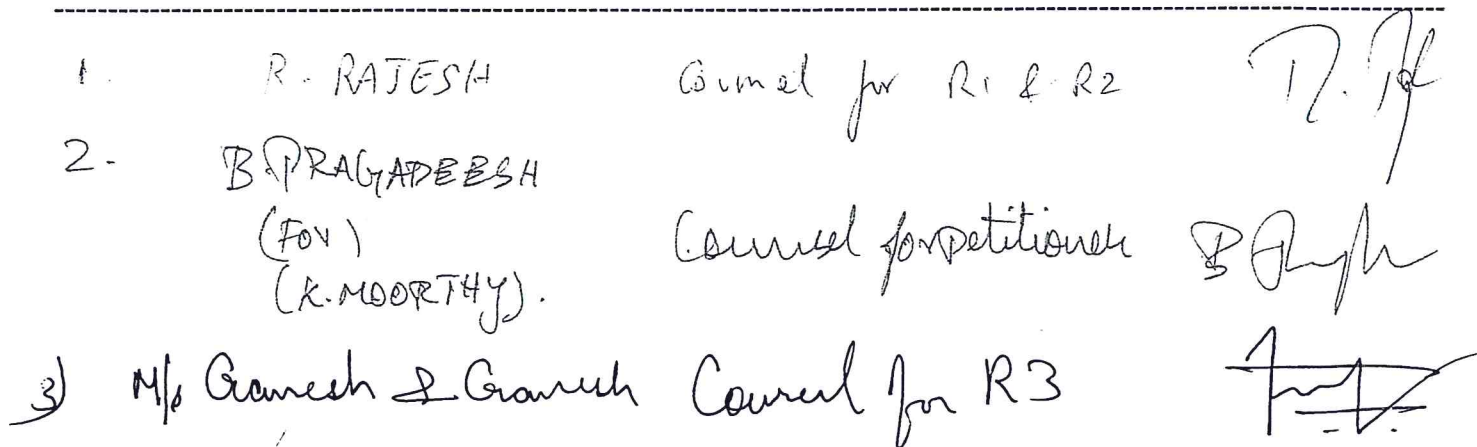 1. R. RAJESH Counsel for R1 & R2
2. B. PRAGADEESH
(FOR)
(K. MOORTHY).
Counsel for petitioner
3) M/s Ganesh & Ganesh Counsel for R3